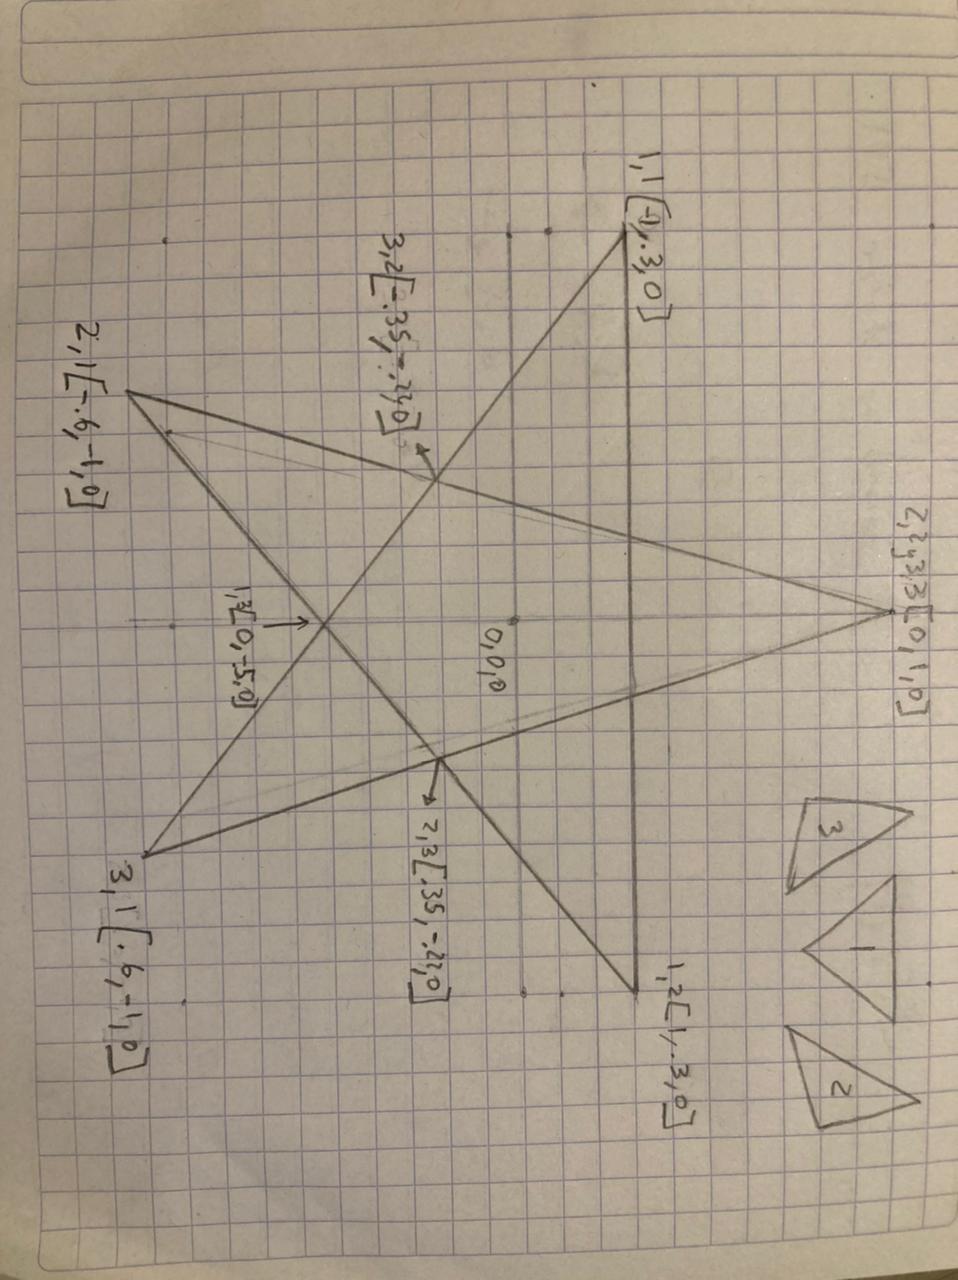 2,2y3,3[0,1,0]
3
1
2
1,1[-1,.3,0]
1,2[1,.3,0]
0,0,0
3,2[-.35,-.22,0]
2,3[.35,-.22,0]
1,3[0,-.5,0]
2,1[-.6,-1,0]
3,1[.6,-1,0]